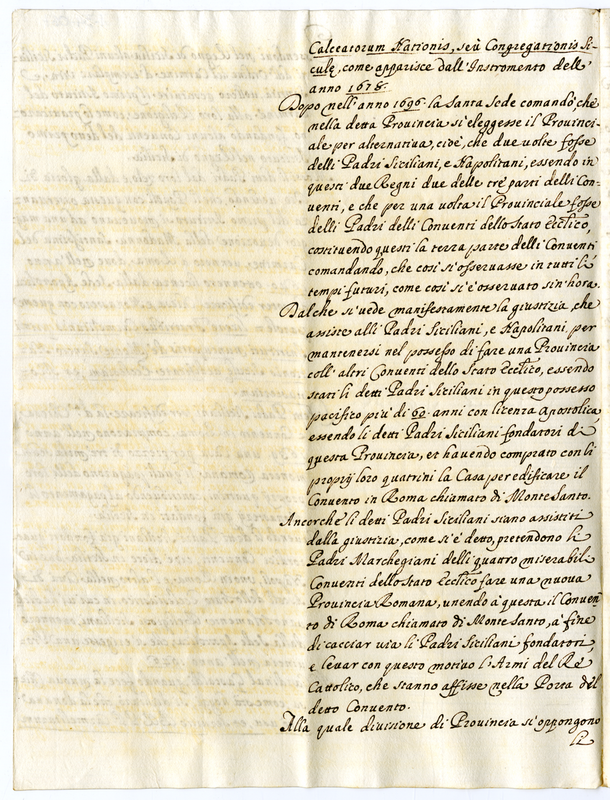 Calceatorum Nationis, seù Congregationis Si-
culę, come apparisce dall'Instromento dell'
anno 1678.
Dopo nell'anno 1696. la Santa Sede comandò, che
nella detta Provincia si eleggesse il Provinci-
ale per alternativa, cioè, che due volte fosse
delli Padri Siciliani, e Napolitani, essendo in
questi due Regni due delle trè parti delli Con-
venti, e che per una volta il Provinciale fosse
delli Padri delli Conventi dello Stato Ecclico,
costituendo questi la terza parte delli Conventi
comandando, che così si osservasse in tutti li
tempi futuri, come così si è osservato sin'hora.
Dal che si vede manifestamente la giustizia, che
assiste alli Padri Siciliani, e Napolitani per
mantenersi nel possesso di fare una Provincia
coll'altri Conventi dello Stato Ecclico, essendo
stati li detti Padri Siciliani in questo possesso
pacifico più di 60. anni con licenza Apostolica
essendo li detti Padri Siciliani fondatori di
questa Provincia, et havendo comprato con li
proprij loro quatrini la Casa per edificare il
Convento in Roma chiamato di Monte Santo.
Ancorchè li detti Padri Siciliani siano assistiti
dalla giustizia, come si è detto, pretendono li
Padri Marchegiani delli quattro miserabili
Conventi dello Stato Ecclico fare una nuova
Provincia Romana, unendo à questa il Conven-
to di Roma chiamato di Monte Santo, à fine
di cacciar via li Padri Siciliani fondatori,
e levar con questo motivo l'Armi del Rè
Cattolico, che stanno affisse nella Porta del
detto Convento.
Alla quale divisione di Provincia si oppongono
li